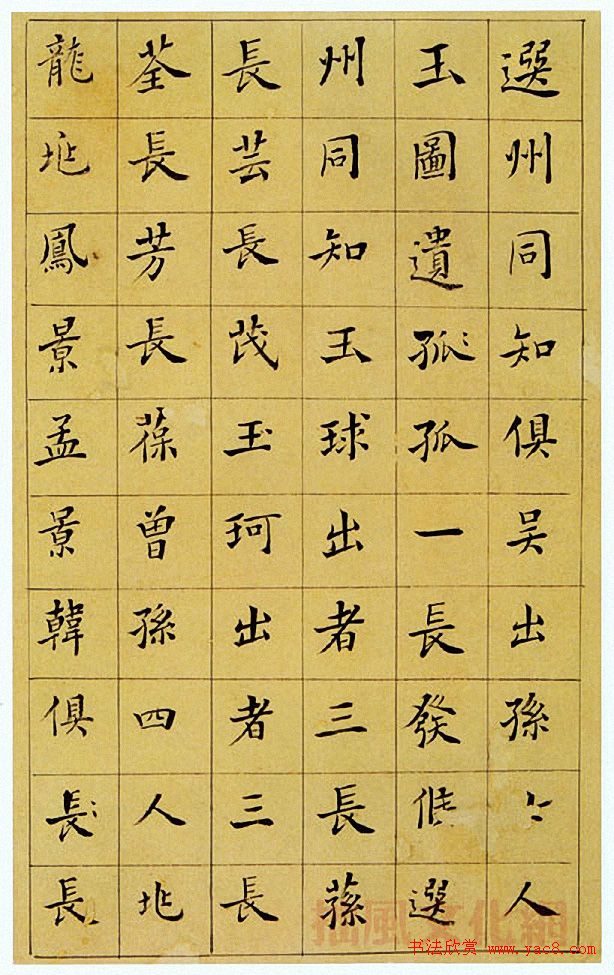 選州同知俱吴出孫人
玉圖遺孤孤一長發候選
州同知玉球出者三長蓀
長芸長茂玉珂出者三長
荃長芳長葆曾孫四人兆
龍兆鳳景孟景韓俱長長
拙風文化網
书法欣赏 www.yac8.com